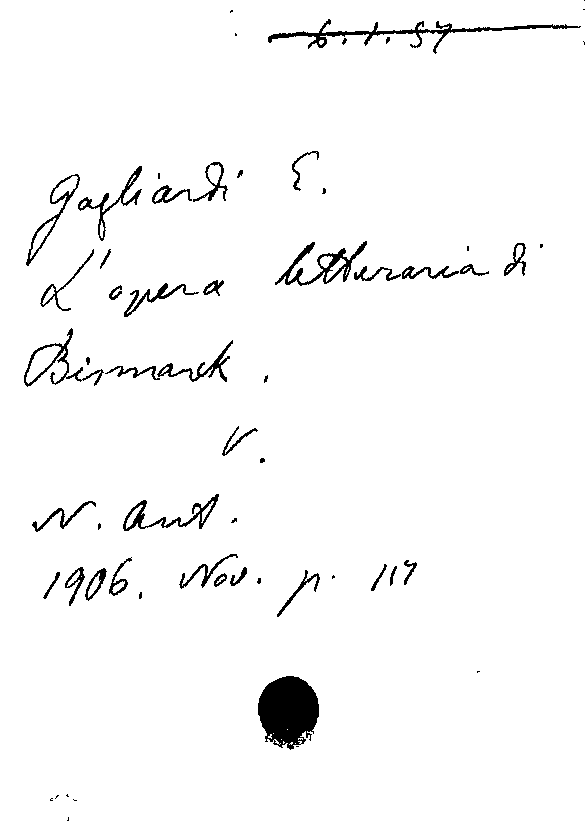 6.1.57
Gagliardi E.
L'opera letteraria di
Bismarck.
V.
N. Ant.
1906. Nov. p. 117